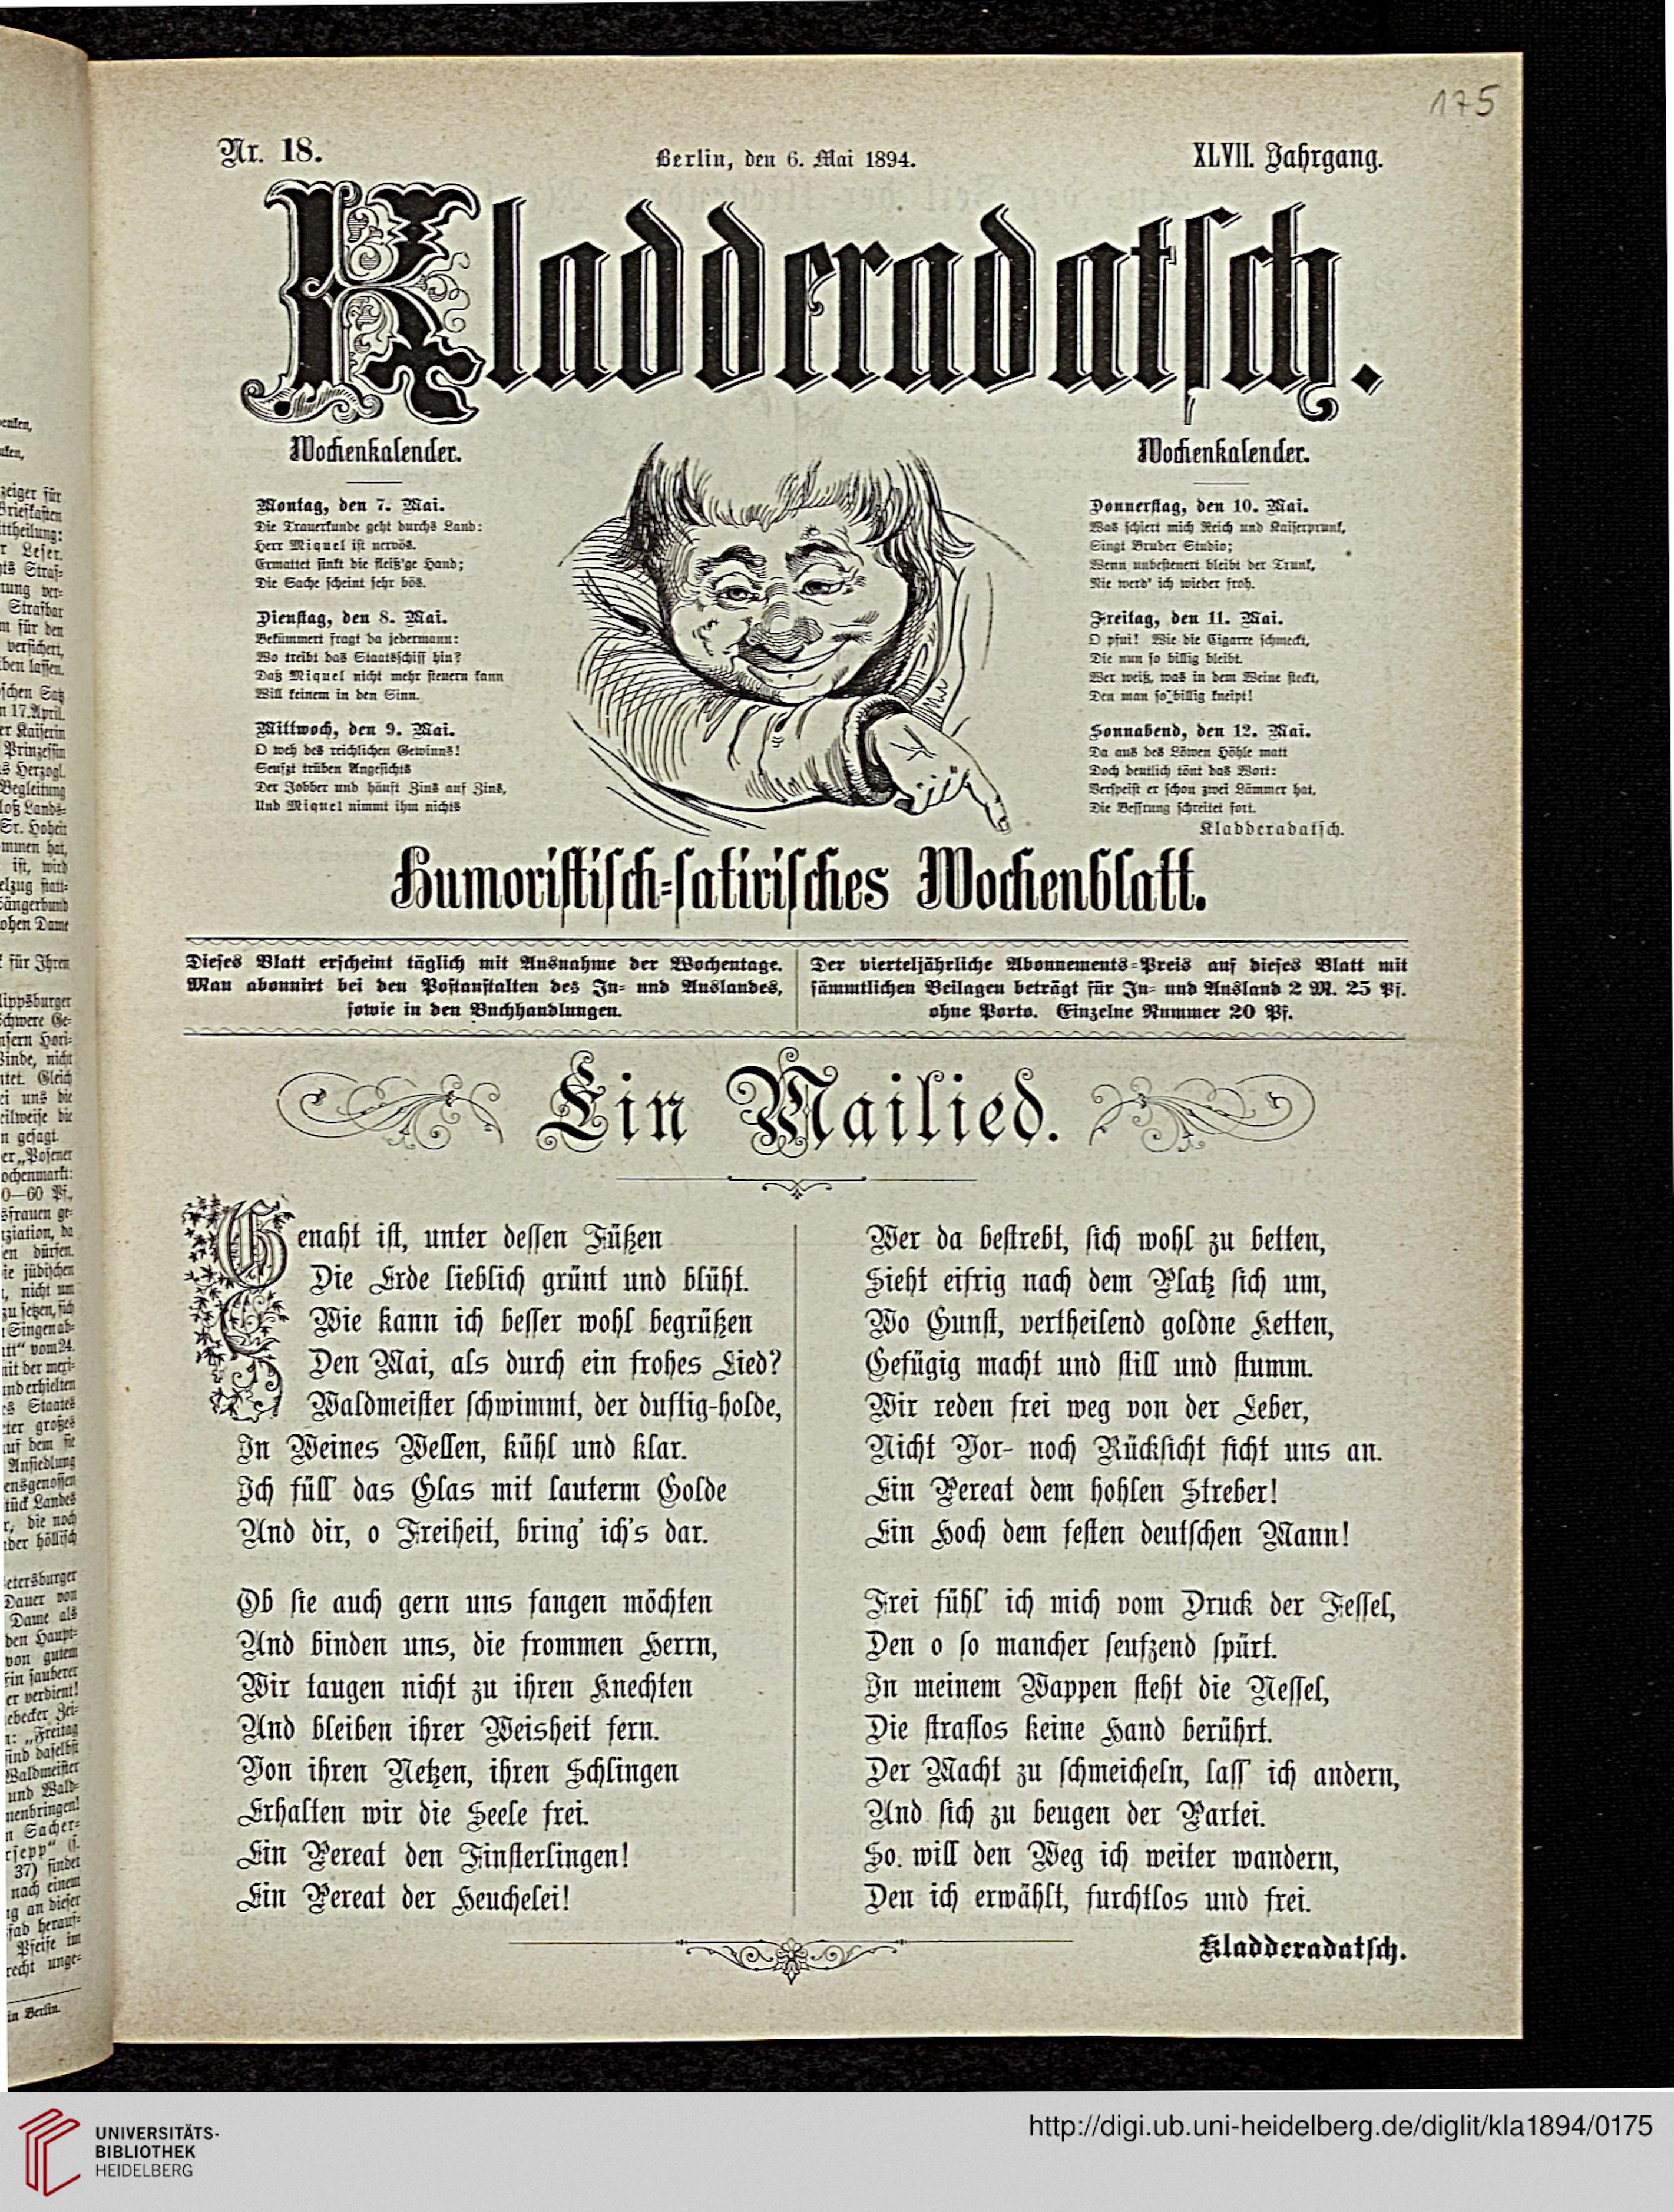 175
Nr. 18.
Berlin, den 6. Mai 1894.
XLVII. Jahrgang.
Kladderadatſch.
Wochenkalender.
Montag, den 7. Mai.
Die Trauerkunde geht durchs Land:
Herr Miquel iſt nervös.
Ermattet ſinkt die fleiß'ge Hand;
Die Sache ſcheint ſehr bös.
Dienſtag, den 8. Mai.
Bekümmert fragt da jedermann:
Wo treibt das Staatsſchiff hin?
Daß Miquel nicht mehr ſteuern kann
Will keinem in den Sinn.
Mittwoch, den 9. Mai.
O weh des reichlichen Gewinns!
Seufzt trüben Angeſichts
Der Jobber und häuft Zins auf Zins,
Und Miquel nimmt ihm nichts
Wochenkalender.
Donnerſtag, den 10. Mai.
Was ſchiert mich Reich und Kaiſerprunk,
Singt Bruder Studio;
Wenn unbeſteuert bleibt der Trunk,
Nie werd' ich wieder froh.
Freitag, den 11. Mai.
O pfui! Wie die Cigarre ſchmeckt,
Die nun ſo billig bleibt.
Wer weiß, was in dem Weine ſteckt,
Den man ſo billig kneipt!
Sonnabend, den 12. Mai.
Da aus des Löwen Höhle matt
Doch deutlich tönt das Wort:
Verſpeiſt er ſchon zwei Lämmer hat,
Die Beſſrung ſchreitet fort.
Kladderadatſch.
Humoriſtiſch-ſatiriſches Wochenblatt.
Dieſes Blatt erſcheint täglich mit Ausnahme der Wochentage.
Man abonnirt bei den Poſtanſtalten des In- und Auslandes,
ſowie in den Buchhandlungen.
Der vierteljährliche Abonnements-Preis auf dieſes Blatt mit
ſämmtlichen Beilagen beträgt für In- und Ausland 2 M. 25 Pf.
ohne Porto. Einzelne Nummer 20 Pf.
Ein Mailied.
Genaht iſt, unter deſſen Füßen
Die Erde lieblich grünt und blüht.
Wie kann ich beſſer wohl begrüßen
Den Mai, als durch ein frohes Lied?
Waldmeiſter ſchwimmt, der duftig-holde,
In Weines Wellen, kühl und klar.
Ich füll' das Glas mit lauterm Golde
Und dir, o Freiheit, bring' ich's dar.
Ob ſie auch gern uns fangen möchten
Und binden uns, die frommen Herrn,
Wir taugen nicht zu ihren Knechten
Und bleiben ihrer Weisheit fern.
Von ihren Netzen, ihren Schlingen
Erhalten wir die Seele frei.
Ein Pereat den Finſterlingen!
Ein Pereat der Heuchelei!
Wer da beſtrebt, ſich wohl zu betten,
Sieht eifrig nach dem Platz ſich um,
Wo Gunſt, vertheilend goldne Ketten,
Gefügig macht und ſtill und ſtumm.
Wir reden frei weg von der Leber,
Nicht Vor- noch Rückſicht ficht uns an.
Ein Pereat dem hohlen Streber!
Ein Hoch dem feſten deutſchen Mann!
Frei fühl' ich mich vom Druck der Feſſel,
Den o ſo mancher ſeufzend ſpürt.
In meinem Wappen ſteht die Neſſel,
Die ſtraflos keine Hand berührt.
Der Macht zu ſchmeicheln, laſſ' ich andern,
Und ſich zu beugen der Partei.
So will den Weg ich weiter wandern,
Den ich erwählt, furchtlos und frei.
Kladderadatſch.
UNIVERSITÄTS-
BIBLIOTHEK
HEIDELBERG
http://digi.ub.uni-heidelberg.de/diglit/kla1894/0175